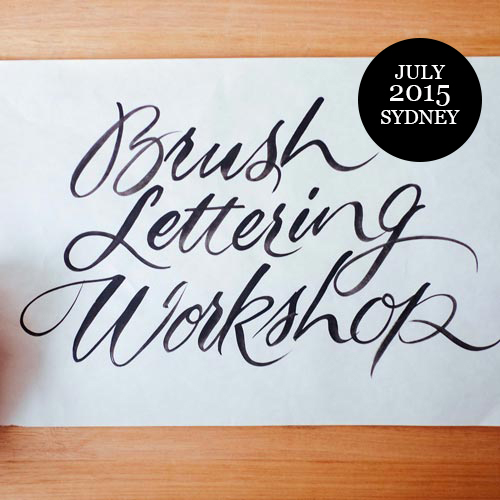 JULY
2015
SYDNEY
Brush
Lettering
Workshop